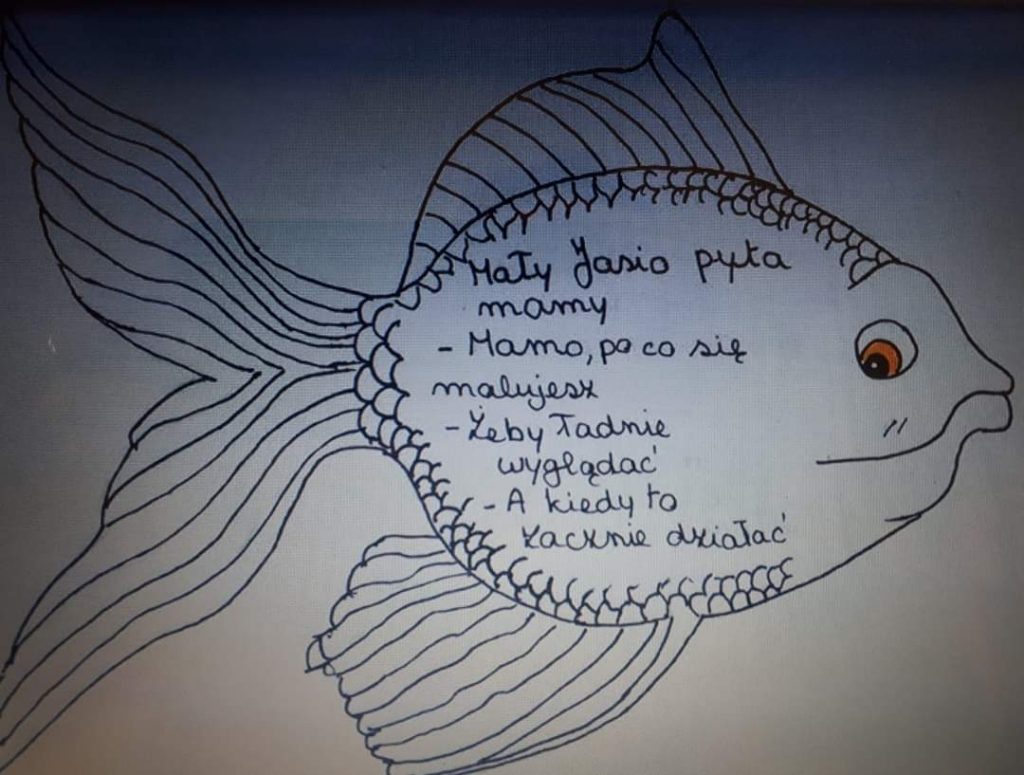 Mały Jasio pyta
mamy
- Mamo, po co się
malujesz
- Żeby ładnie
wyglądać
- A kiedy to
zacznie działać